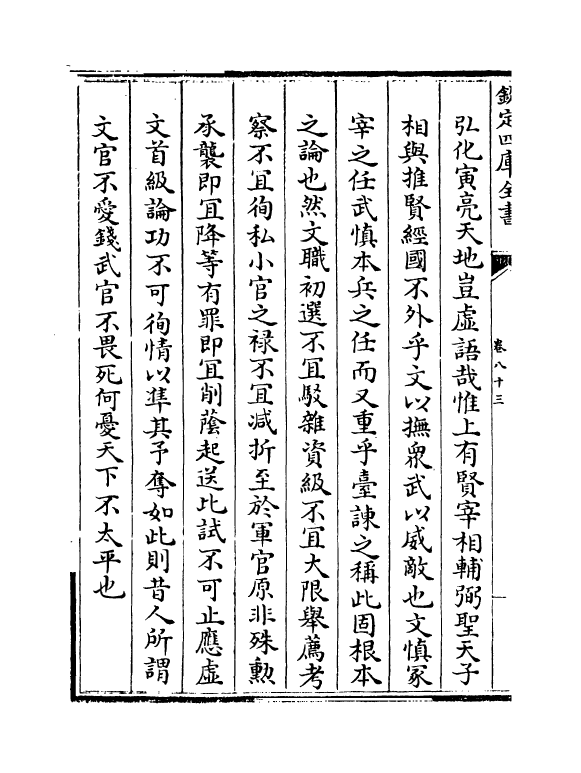 欽定四庫全書
卷八十三
弘化寅亮天地豈虛語哉惟上有賢宰相輔弼聖天子
相與推賢經國不外乎文以撫衆武以威敵也文慎冢
宰之任武慎本兵之任而又重乎臺諫之稱此固根本
之論也然文職初選不冝駁雜資級不冝大限舉薦考
察不冝徇私小官之祿不冝减折至於軍官原非殊勲
承襲即冝降等有罪即冝削蔭起送比試不可止應虛
文首級論功不可徇情以凖其予奪如此則昔人所謂
文官不愛錢武官不畏死何憂天下不太平也